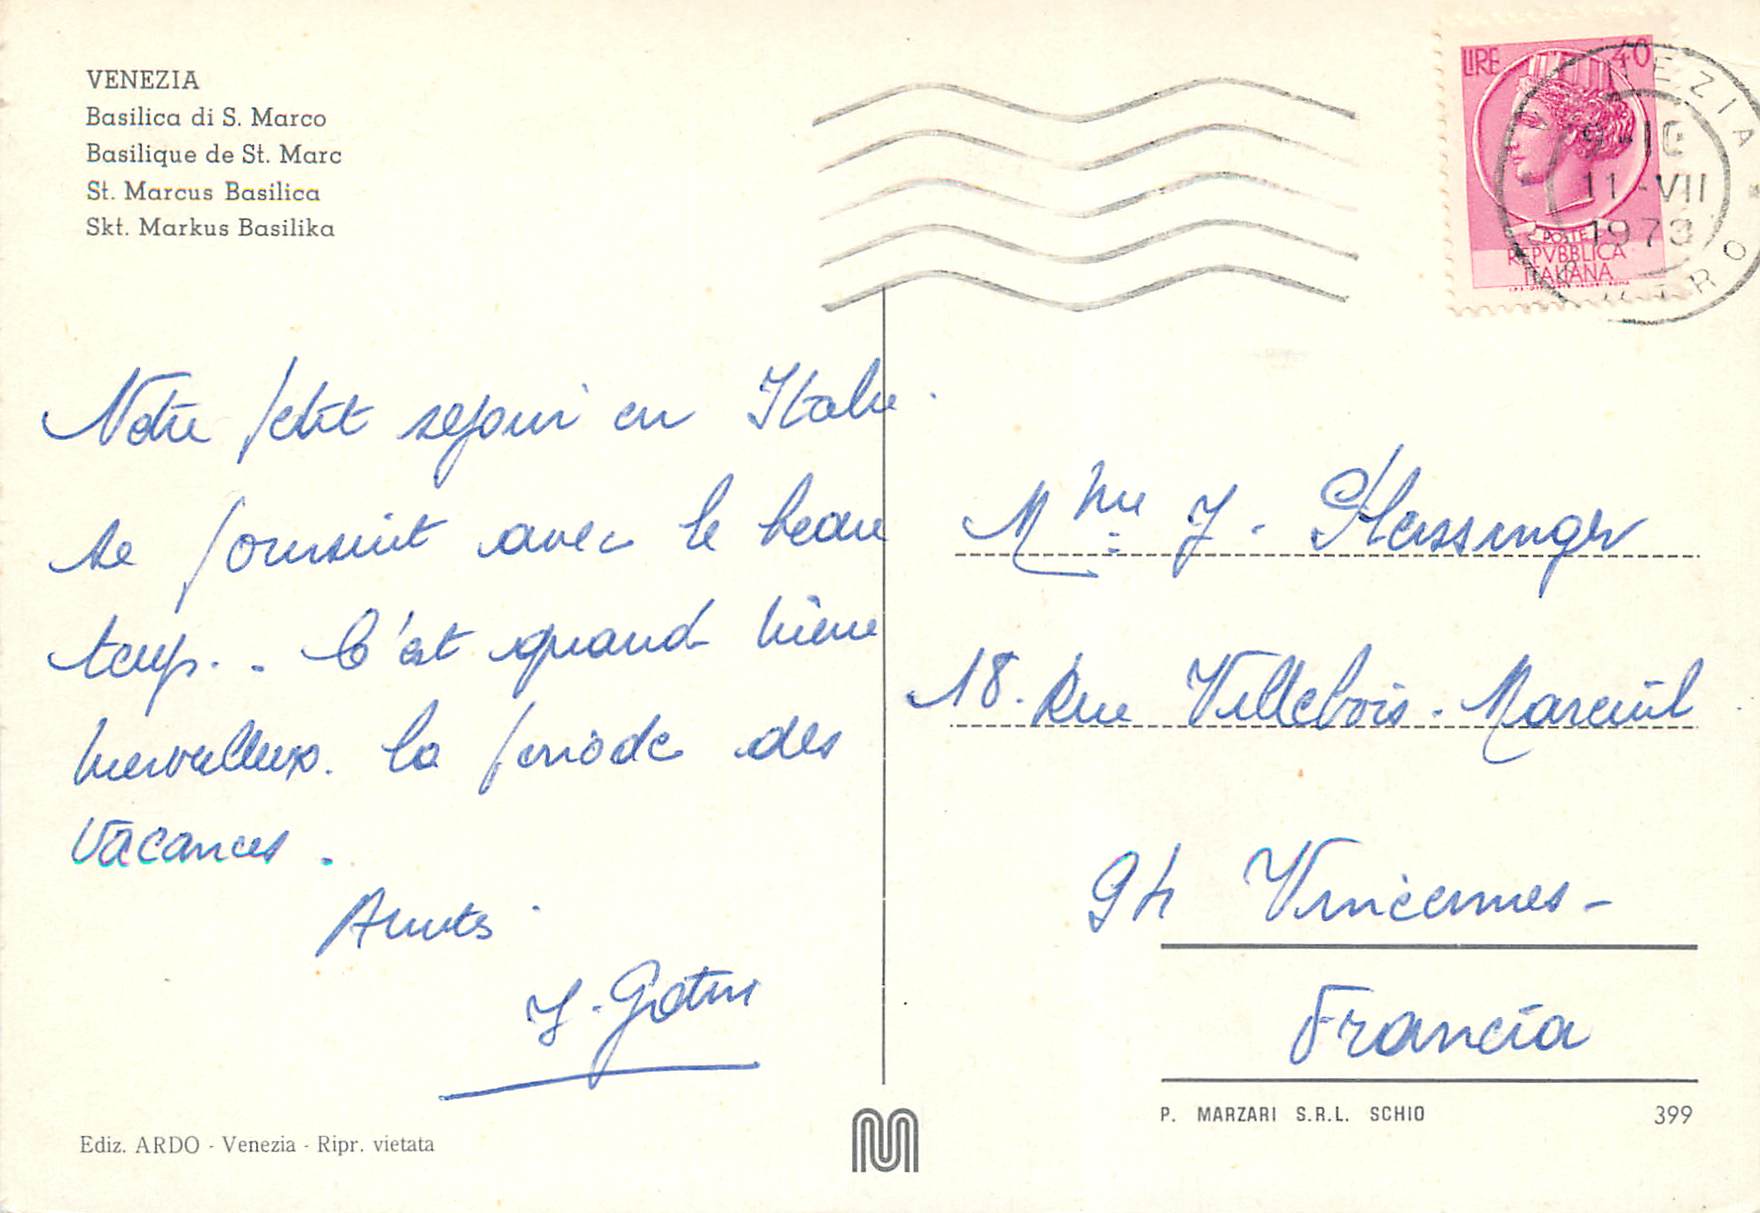 VENEZIA
Basilica di S. Marco
Basilique de St. Marc
St. Marcus Basilica
Skt. Markus Basilika
LIRE 40
POSTE
REPVBBLICA
ITALIANA
VENEZIA
9-10
11-VII
1973
Notre petit séjour en Italie
se poursuit avec le beau
temps.. C'est quand même
merveilleux. la période des
vacances.
Amitiés
Mme J.
18. Rue Villebois-Mareuil
94 Vincennes-
Francia
P. MARZARI S.R.L. SCHIO
399
Ediz. ARDO - Venezia - Ripr. vietata